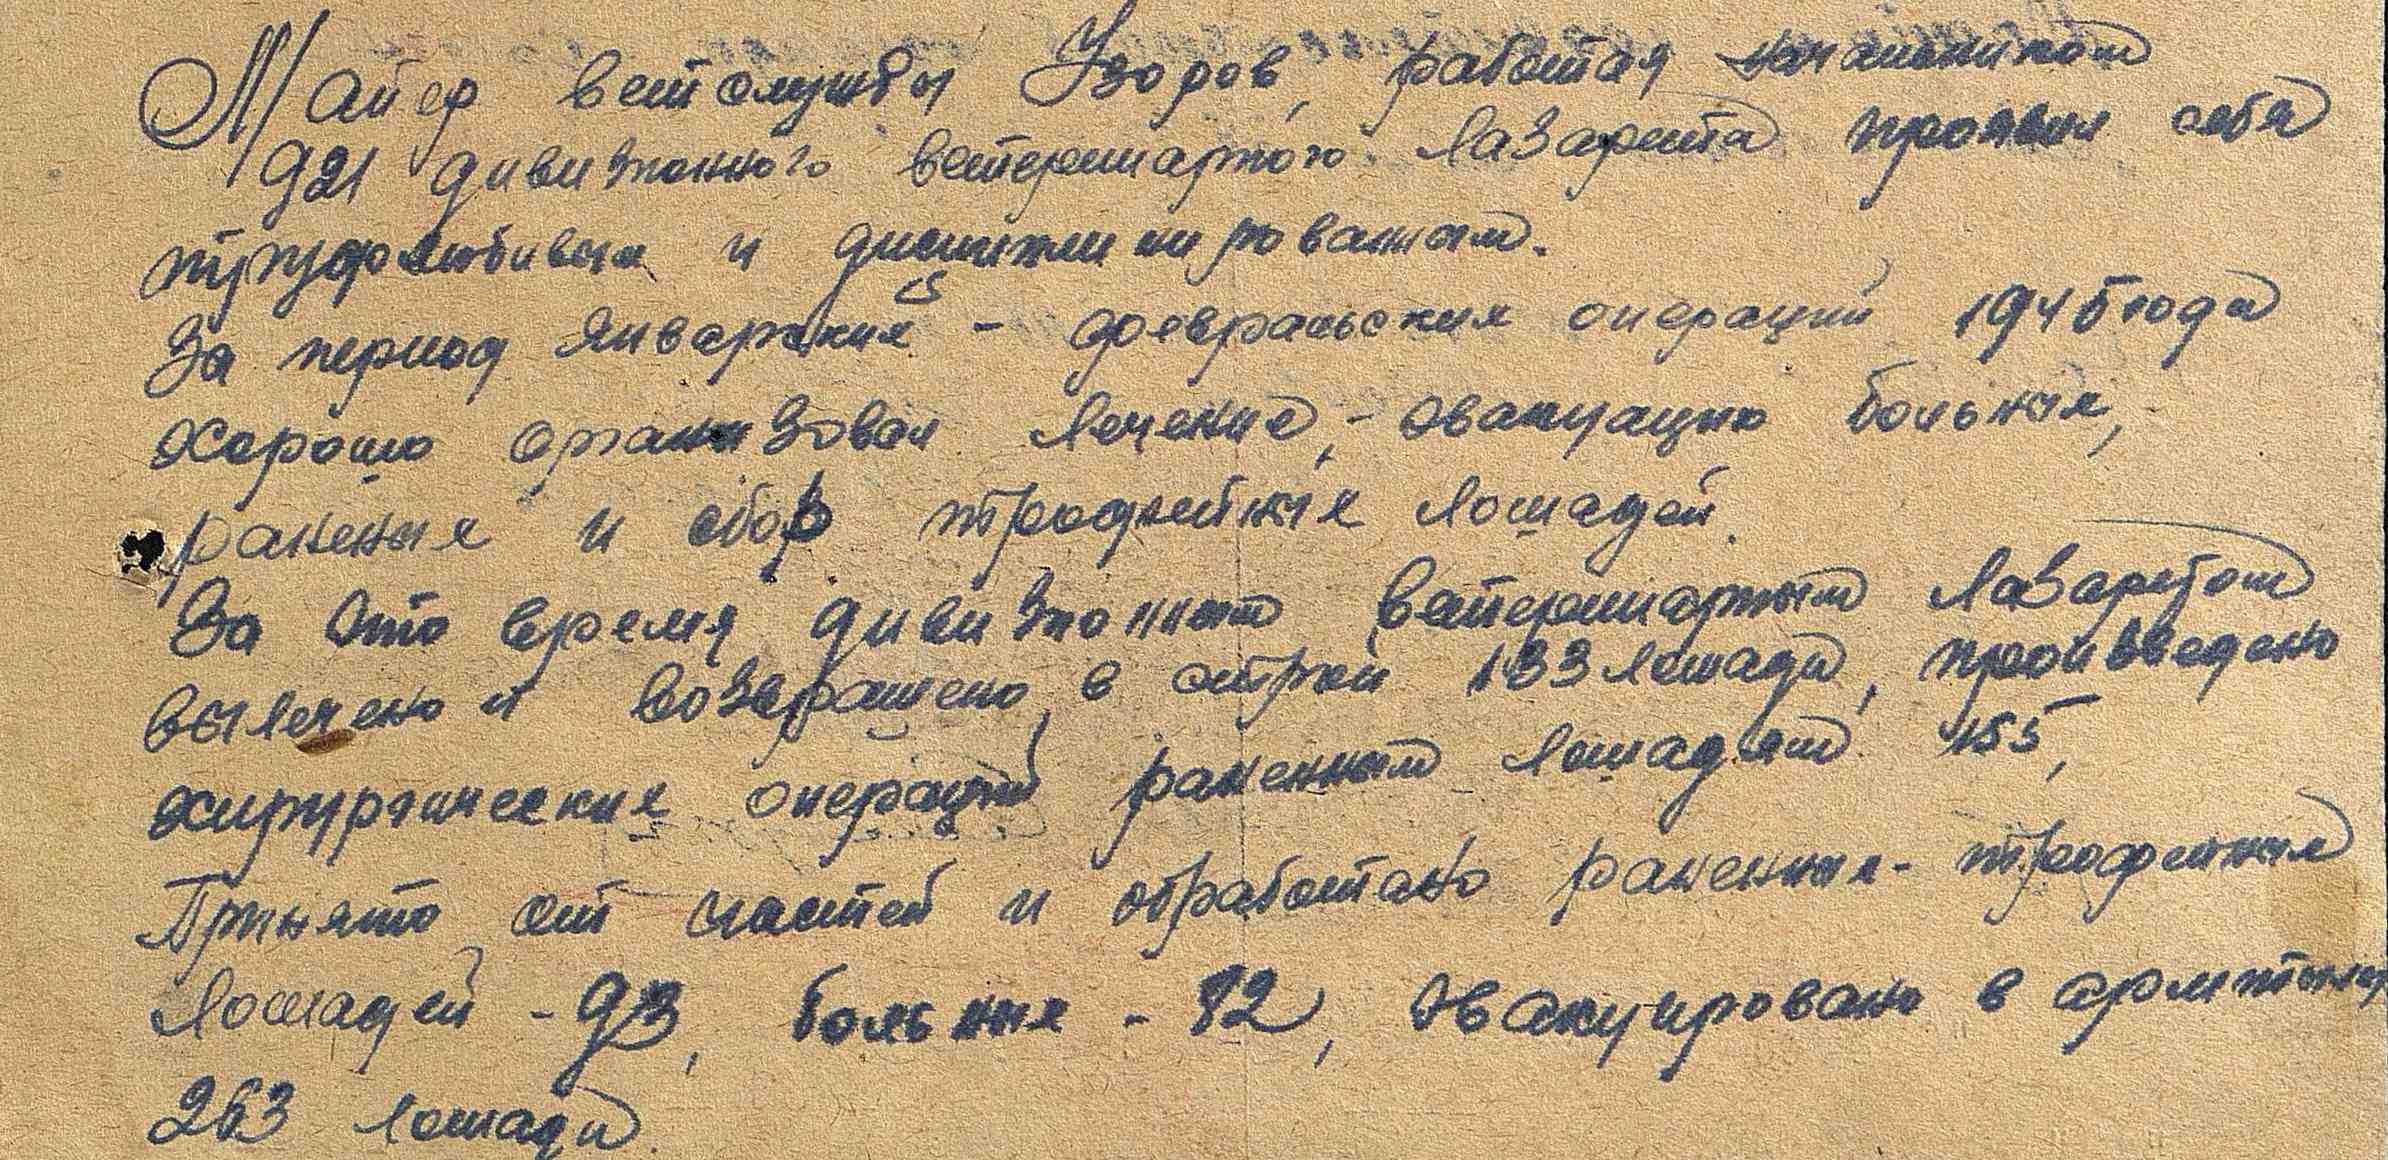 Майор ветслужбы Узоров, работая начальником
921 дивизионного ветеринарного лазарета проявил себя
трудолюбивым и дисциплинированным.
За период январских - февральских операций 1945 года
хорошо организовал лечение, - эвакуацию больных,
раненых и сбор трофейных лошадей.
За это время дивизионным ветеринарным лазаретом
вылечено и возвращено в строй 133 лошади, произведено
хирургических операций раненным лошадям 155,
Принято от частей и обработано раненных - трофейных
лошадей - 93, больных - 82, эвакуировано в армтыл
263 лошади.